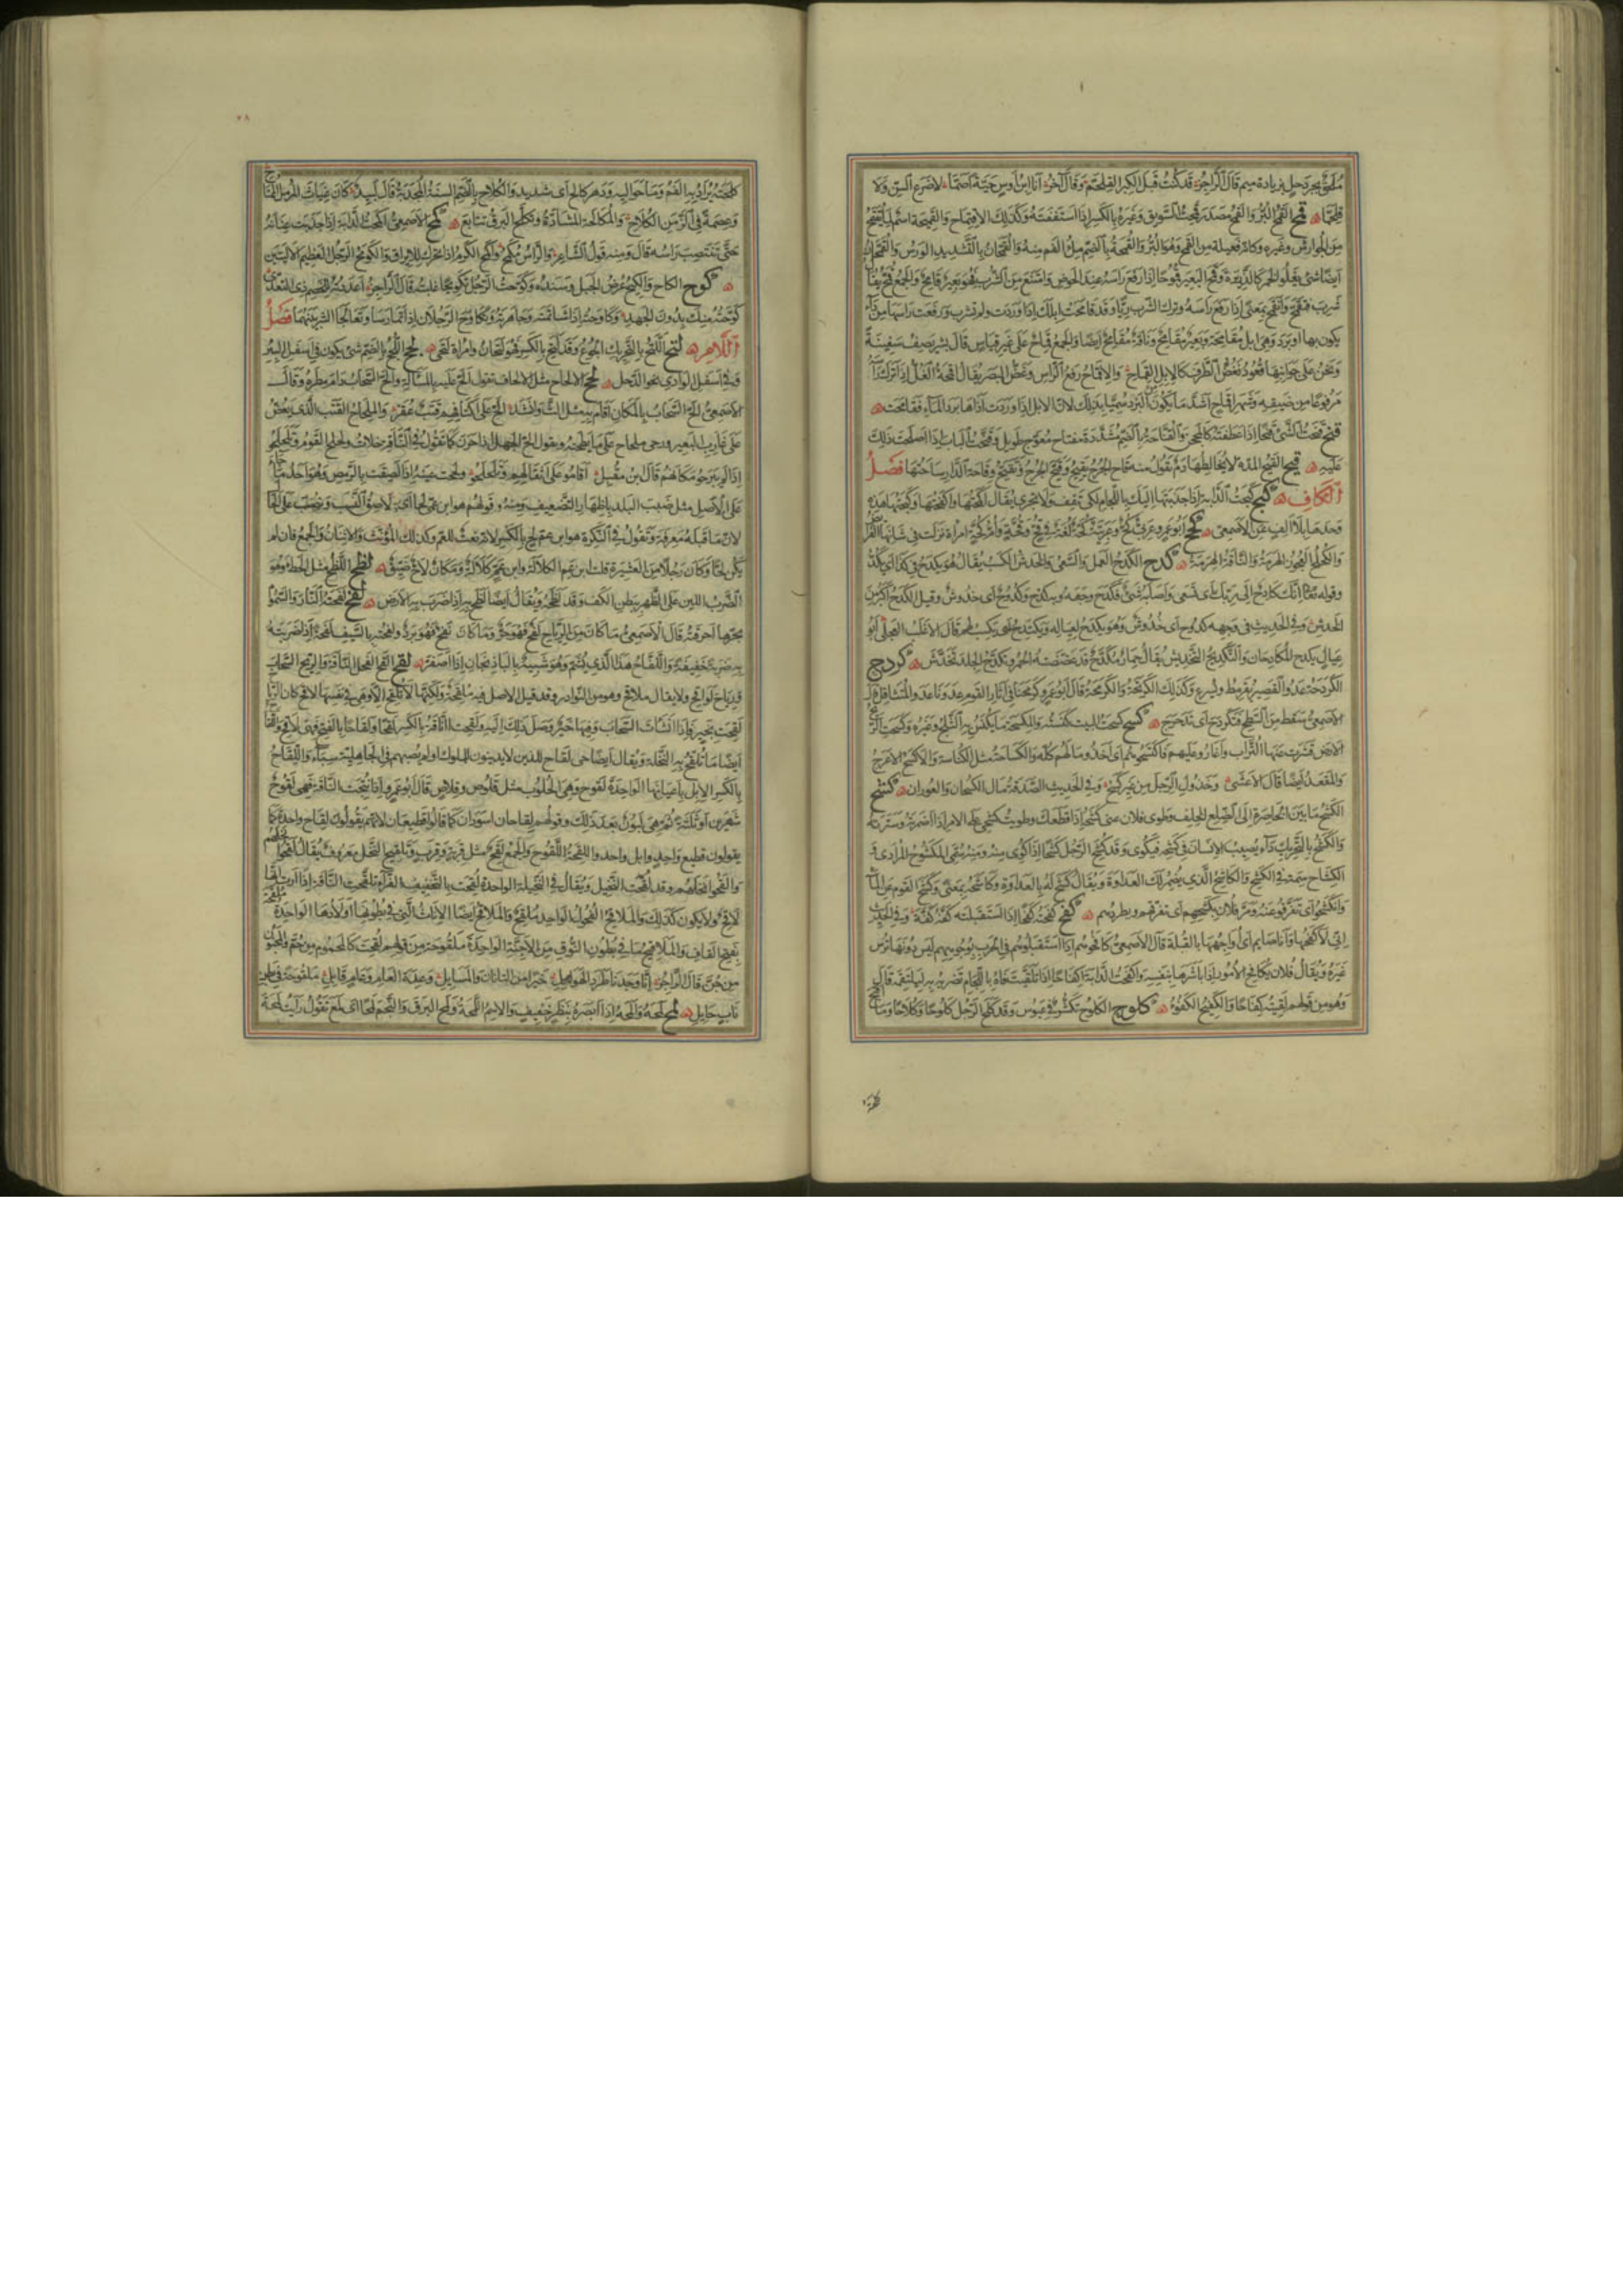 ملحق بجردحل بزيادة ميم قال الراجز قد كنت قبل الكبر القلحم وقال آخر انا ابن اوس حية اصما لا ضرع السن ولا
قلحما قمح القمح البر والقمح مصدر قمحت السويق وغيره بالكسر اذا استففته وكذلك الاقتماح والقميحة اسم لما يقتمح
من الجوارش وغيره وكانه فعيلة من القمح وهو البر والقمحة بالضم ملء الفم منه والقمحان بالتشديد الورس
ايضا شئ يعلو الخمر كالذريرة وقمح البعير قموحا اذا رفع راسه عند الحوض وامتنع من الشرب فهو بعير قامح والجمع قمح يقال
شرب فتقمح وانقمح بمعنى اذا رفع راسه وترك الشرب ريا وقد قامحت ابلك اذا وردت ولم تشرب ورفعت راسها من داء
يكون بها او برد وهى ابل مقامحة وبعير مقامح وناقة مقامح ايضا والجمع قماح على غير قياس قال بشر يصف سفينة
ونحن على جوانبها قعود نغض الطرف كالابل القماح والاقماح رفع الراس وغض البصر يقال اقمحه الغل اذا ترك راسه
مرفوعا من ضيقه وشهرا قماح اشد ما يكون البرد سميا بذلك لان الابل اذا وردت آذاها برد الماء فقامحت
قنح قنحت الشئ قنحا اذا عطفته كالمحجن والقناحة بالضم مشددة مفتاح معوج طويل وقنحت الباب اذا اصلحت ذلك
عليه قيح القيح المدة لا يخالطها دم تقول منه قاح الجرح يقيح وقيح الجرح وتقيح وقاحة الدار ساحتها فصل
الكاف كبح كبحت الدابة اذا جذبتها اليك باللجام لكى تقف ولا تجرى يقال اكمحتها واكفحتها وكبحتها هذه
وحدها بلا الف عن الاصمعى كحح ابو عمرو عربى كح وعربية كحة لغة فى قح وقحة وام كحة امراة نزلت فى شانها الفرائض
والكحكح العجوز الهرمة والناقة الهرمة كدح الكدح العمل والسعى والخدش والكسب يقال هو يكدح فى كذا اى يكد
وقوله تعالى انك كادح الى ربك اى تسعى واصابه شئ فكدح وجهه وبه كدح وكدوح اى خدوش وقيل الكدح اكبر من
الخدش وفى الحديث فى وجهه كدوح اى خدوش وهو يكدح لعياله ويكتدح اى يكتسب لهم قال الاغلب العجلى ابو
عيال يكدح المكادحا والتكديح التخديش يقال حمار مكدح قد عضضته الحمر وتكدح الجلد تخدش كردح
الكردحة عدو القصير يقرمط ويسرع وكذلك الكرتحة والكرمحة قال ابو عمرو كرمحنا فى آثار القوم عدونا عدو المتثاقل
الاصمعى سقط من السطح فتكردح اى تدحرج كسح كسحت البيت كنسته والمكسحة ما يكنس به الثلج وغيره وكسحت الريح
الارض قشرت عنها التراب واغاروا عليهم فاكتسحوهم اى اخذوا مالهم كله والكساحة مثل الكناسة والاكسح الاعرج
والمقعد ايضا قال الاعشى وخذول الرجل من غير كسح وفى الحديث الصدقة مال الكسحان والعوران كشح
الكشح ما بين الخاصرة الى الضلع الخلف وطوى فلان عنى كشحه اذا قطعك وطويت كشحى على الامر اذا اضمرته وسترته
والكشح بالتحريك داء يصيب الانسان فى كشحه فيكوى وقد كشح الرجل كشحا اذا كوى منه ومنه سمى المكشوح المرادى
الكشاح سمة فى الكشح والكاشح الذى يضمر لك العداوة ويقال كشح له بالعداوة وكاشحه بمعنى وكشح القوم عن الماء
وانكشحوا اى تفرقوا عنه ومر فلان يكشحهم اى يفرقهم ويطردهم كفح كفحته كفحا اذا استقبلته كفة كفة وفى الحديث
انى لاكفحها وانا صايم اى اواجهها بالقبلة قال الاصمعى كافحوهم اذا استقبلوهم فى الحرب بوجوههم ليس دونها ترس
غيره ويقال فلان يكافح الامور اذا باشرها بنفسه واكفحت الدابة اكفاحا اذا تلقيت فاه باللجام تضربه به ليلتقمه قال
وهو من قولهم لقيته كفاحا والكفيح الكفو كلوح الكلوح تكشر فى عبوس وقد كلح الرجل كلوحا وكلاحا وما اقبح
كلحته
كلحته يراد به الفم وما حواليه ودهر كالح اى شديد والكلاح بالضم السنة المجدبة قال لبيد كان غياث المرمل الممتاح
وعصمة فى الزمن الكلاح والمكالحة المشادة وتكلح البرق تتابع كمح الاصمعى اكمحت الدابة اذا جذبت عنانه
حتى تنتصب راسه قال ومنه قول الشاعر والراس مكمح واكمح الكرم اذا تحرك للايراق والكومح الرجل العظيم الاليتين
كوح الكاح والكيح عرض الجبل وسنده وكوحت الرجل تكويحا غلبته قال الراجز اعددته للخصم ذى التعدى
كوحته منك بدون الجهد وكاوحته اذا شاتمته وجاهرته وتكاوح الرجلان اذا تمارسا وتعالجا الشر بينهما فصل
اللام لتح اللتح بالتحريك الجوع وقد لتح بالكسر فهو لتحان وامراة لتحى لجح اللجح بالضم شئ يكون فى اسفل البئر
وفى اسفل الوادى نحو الدحل لحح الالحاح مثل الالحاف تقول الح عليه بالمسالة والح السحاب دام مطره وقال
الاصمعى الح السحاب بالمكان اقام به مثل الث وانشد الح على اكتافهم قتب عقر والملحاح القتب الذى يعض
على غارب البعير ورحى ملحاح على ما يطحنه وتقول الح الجمل اذا حرن كما تقول فى الناقة خلات ولحلح القوم وتلحلحوا
اذا لم يبرحوا مكانهم قال ابن مقبل اقاموا على اثقالهم وتلحلحوا ولححت عينه اذا لصقت بالرمص وهو احد ما جاء
على الاصل مثل ضبب البلد باظهار التضعيف ومنه وقولهم هو ابن عمى لحا اى لاصق النسب ونصب على الحال
لان ما قبله معرفة وتقول فى النكرة هو ابن عم لح بالكسر لانه نعت للعم وكذلك المؤنث والاثنان والجمع فان لم
يكن لحا وكان رجلا من العشيرة قلت ابن عم الكلالة وابن عم كلالة ومكان لاح ضيق لطح اللطح مثل الحطء وهو
الضرب اللين على الظهر ببطن الكف وقد لطحه ويقال ايضا لطح به اذا ضرب به الارض لفح لفحته النار والسموم
بحرها احرقته قال الاصمعى ما كان من الرياح لفح فهو حر وما كان نفح فهو برد ولفحته بالسيف لفحة اذا ضربته
به ضربة خفيفة واللفاح هذا الذى يشم وهو شبيه بالباذنجان اذا اصفر لقح القح الفحل الناقة والريح السحاب
ورياح لواقح ولا يقال ملاقح وهو من النوادر وقد قيل الاصل فيه ملقحة ولكنها لا تلقح الا وهى فى نفسها لاقح كان الرياح
لقحت بخير فاذا انشات السحاب وفيها خير وصل ذلك اليه ولقحت الناقة بالكسر لقحا ولقاحا بالفتح فهى لاقح واللقاح
ايضا ما تلقح به النخلة ويقال ايضا حى لقاح للذين لا يدينون للملوك او لم يصبهم فى الجاهلية سباء واللقاح
بالكسر الابل باعيانها الواحدة لقوح وهى الحلوب مثل قلوص وقلاص قال ابو عمرو اذا نتجت الناقة فهى لقوح
شهرين او ثلثة ثم هى لبون بعد ذلك وقولهم لقاحان اسودان كما قالوا قطيعان لانهم يقولون لقاح واحدة كما
يقولون قطيع واحد وابل واحد واللقحة اللقوح والجمع لقح مثل قربة وقرب وتلقيح النخل معروف يقال لقحوا نخلهم
والقحوا نخلهم وقد لقحت النخيل ويقال فى النخلة الواحدة لقحت بالتخفيف الفراء تلقحت الناقة اذا ارت انها
لاقح ولا يكون كذلك والملاقح الفحول الواحد ملقح والملاقح ايضا الاناث التى فى بطونها اولادها الواحدة ملقحة
بفتح القاف والملاقيح ما فى بطون النوق من الاجنة الواحدة ملقوحة من قولهم لقحت كالمحموم من حم والمجنون
من جن قال الراجز انا وجدنا طرد الهوامل خيرا من التانان والمسايل وعدة العام وعام قابل ملقوحة فى بطن
ناب حايل لمح لمحه والمحه اذا ابصره بنظر خفيف والاسم اللمحة ولمح البرق والنجم لمحا اى لمع تقول رايت لمحة